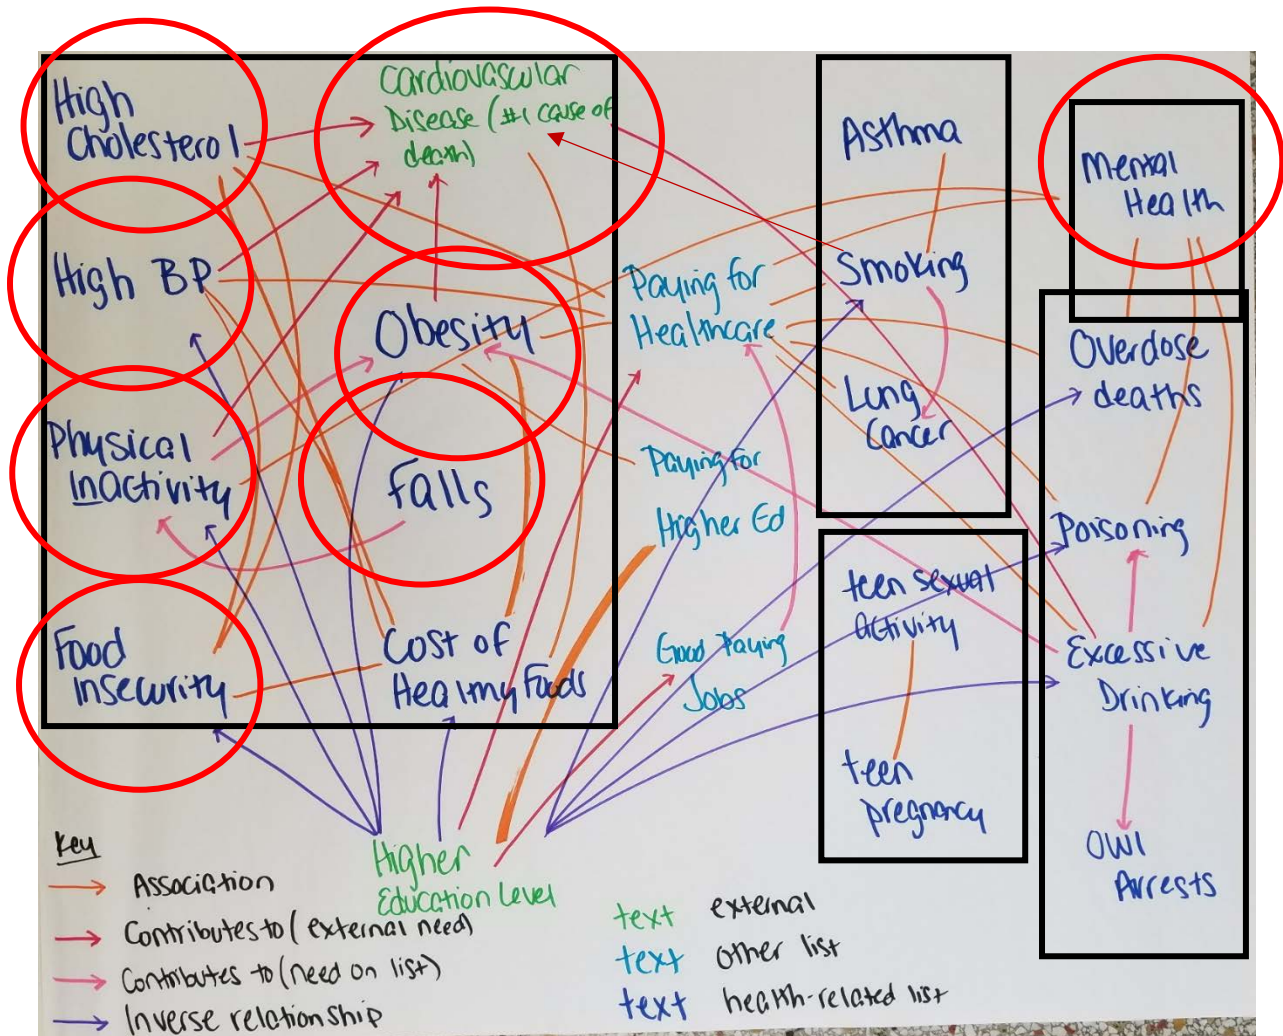 High
Cholesterol
Cardiovascular
Disease (#1 cause of
death)
High BP
Obesity
Physical
INactivity
Falls
Food
Insecurity
Cost of
Healthy Foods
Paying for
Healthcare
Paying for
Higher Ed
Good Paying
Jobs
Asthma
Smoking
Lung
Cancer
teen sexual
activity
teen
pregnancy
Mental
Health
Overdose
deaths
Poisoning
Excessive
Drinking
OWI
Arrests
Higher
Education Level
Key
Association
Contributes to (external need)
Contributes to (need on list)
Inverse relationship
text external
text other list
text health-related list